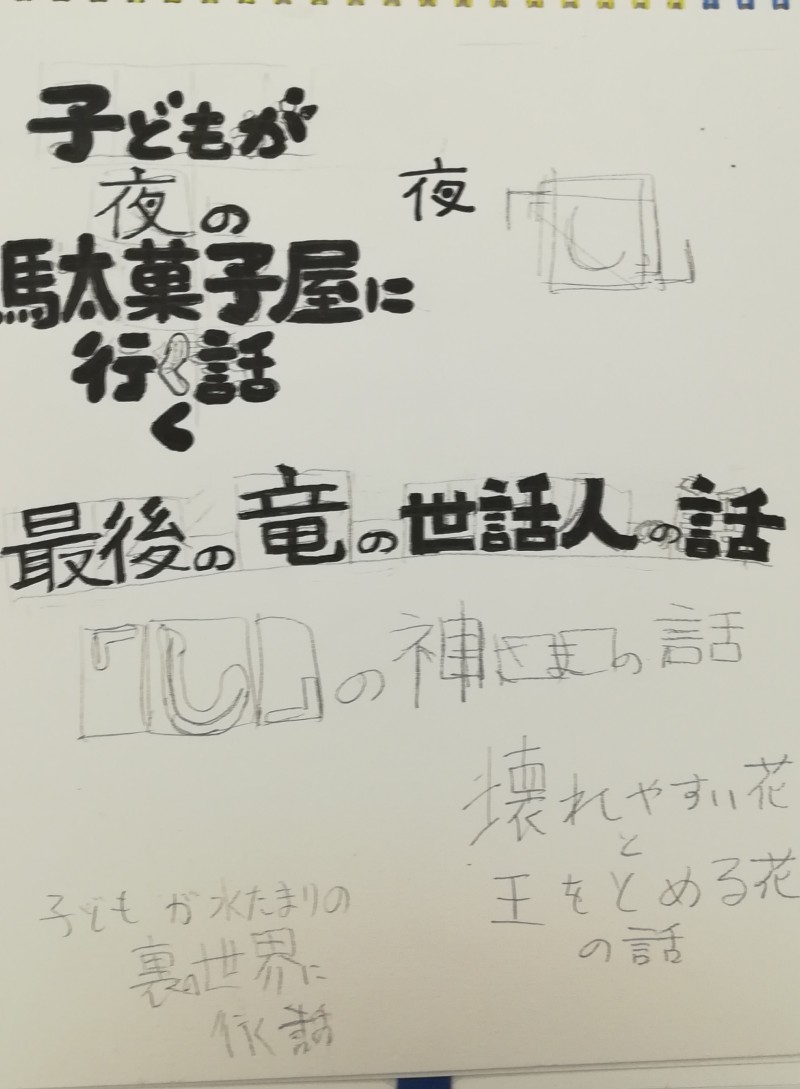 子どもが
夜の
夜
「し」
駄菓子屋に
行く話
く
最後の竜の世話人の話
「し」の神さまの話
壊れやすい花
と
王をとめる花
の話
子どもが水たまりの
裏の世界に
行く話